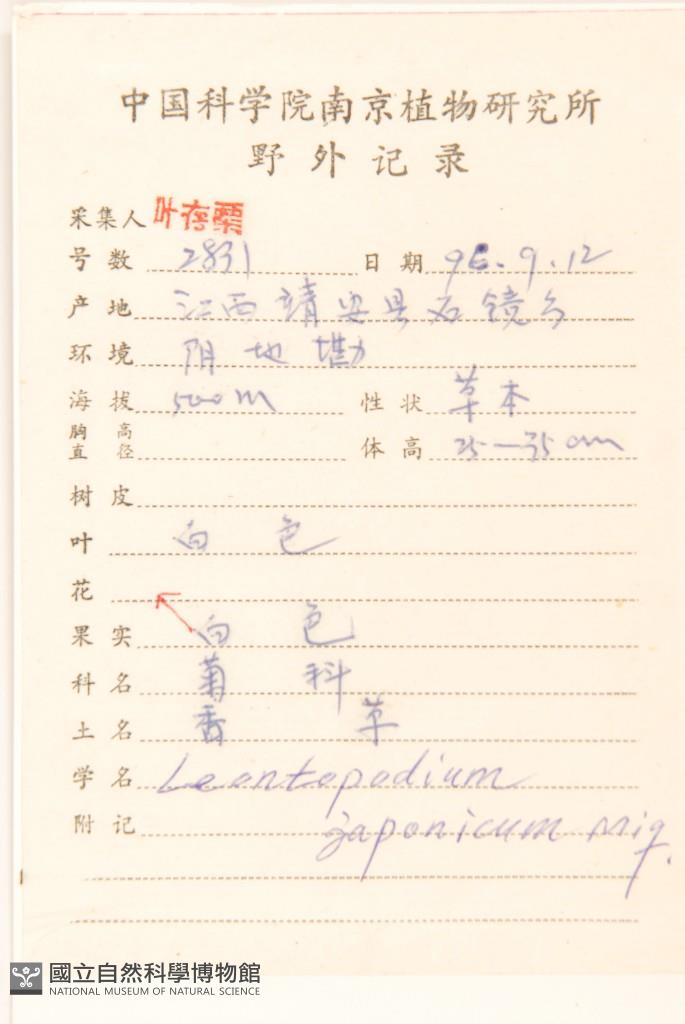 中国科学院南京植物研究所
野外记录
采集人 叶存粟
号数 2831 日期 96.9.12
产地 江西靖安县石镜乡
环境 阴地
海拔 500m 性状 草本
胸高直径 体高 25—35cm
树皮
叶 白色
花
果实 白色
科名 菊科
土名 香草
学名 Leontopodium
附记 japonicum Miq.
國立自然科學博物館
NATIONAL MUSEUM OF NATURAL SCIENCE